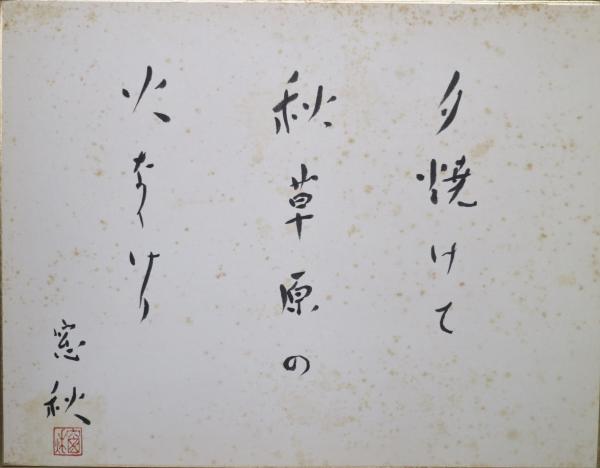 夕焼けて
秋草原の
火なりけり
窓秋